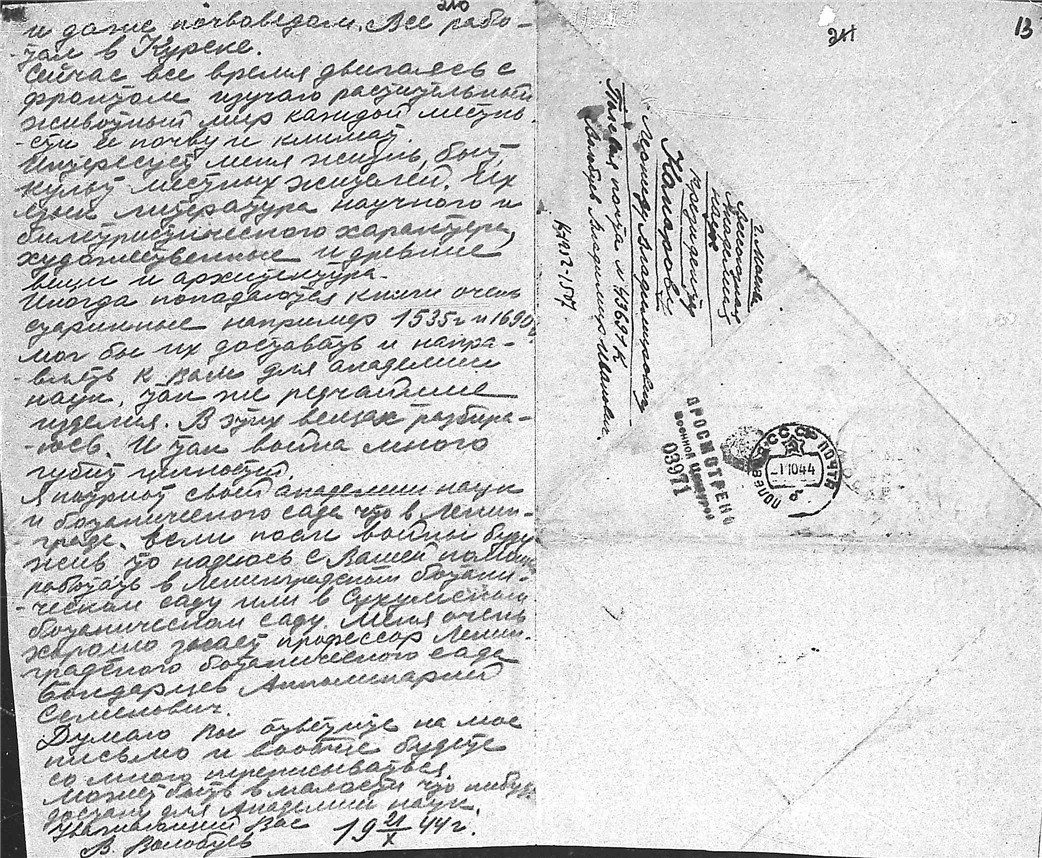 210
и даже почвоведом. Все рабо-
-тал в Курске.
Сейчас все время двигаясь с
фронтом изучаю растительный
животный мир каждой местно-
-сти ее почву и климат
Интересует меня жизнь, быт,
культ местных жителей. Их
язык литература научного и
билетристического характера,
художественные и древние
вещи и архитектура.
Иногда попадаются книги очень
старинные например 1535г и 1690г
мог бы их доставать и напра-
-влять к Вам для академии
наук, так же редчайшие
изделия. В этих вещах разбира-
-юсь. И так война много
губит ценностей.
Я патриот своей академии наук
и ботанического сада что в Ленин-
граде. Если после войны буду
жив то надеюсь с Вашей помощью
работать в Ленинградском ботани-
-ческом саду или в Сухумском
ботаническом саду. Меня очень
хорошо знает профессор Ленин-
градского ботанического сада
Бондарцев Апполинарий
Семенович.
Думаю Вы ответите на мое
письмо и вообще будете
со мною переписываться.
Может быть в малости что нибудь
достану для Академии наук.
Уважающий Вас
В. Волобуев
19 21/X 44 г.
211
13
г. Москва
Академия
наук
Президенту
Комарову
Леониду Владимировичу
Полевая почта № 43697 К
Волобуев Владимир Иванович.
ПРОСМОТРЕНО
Военной Цензурой
03971
СССР ПОЧТА
-1 10 44
ПОЛЕВ